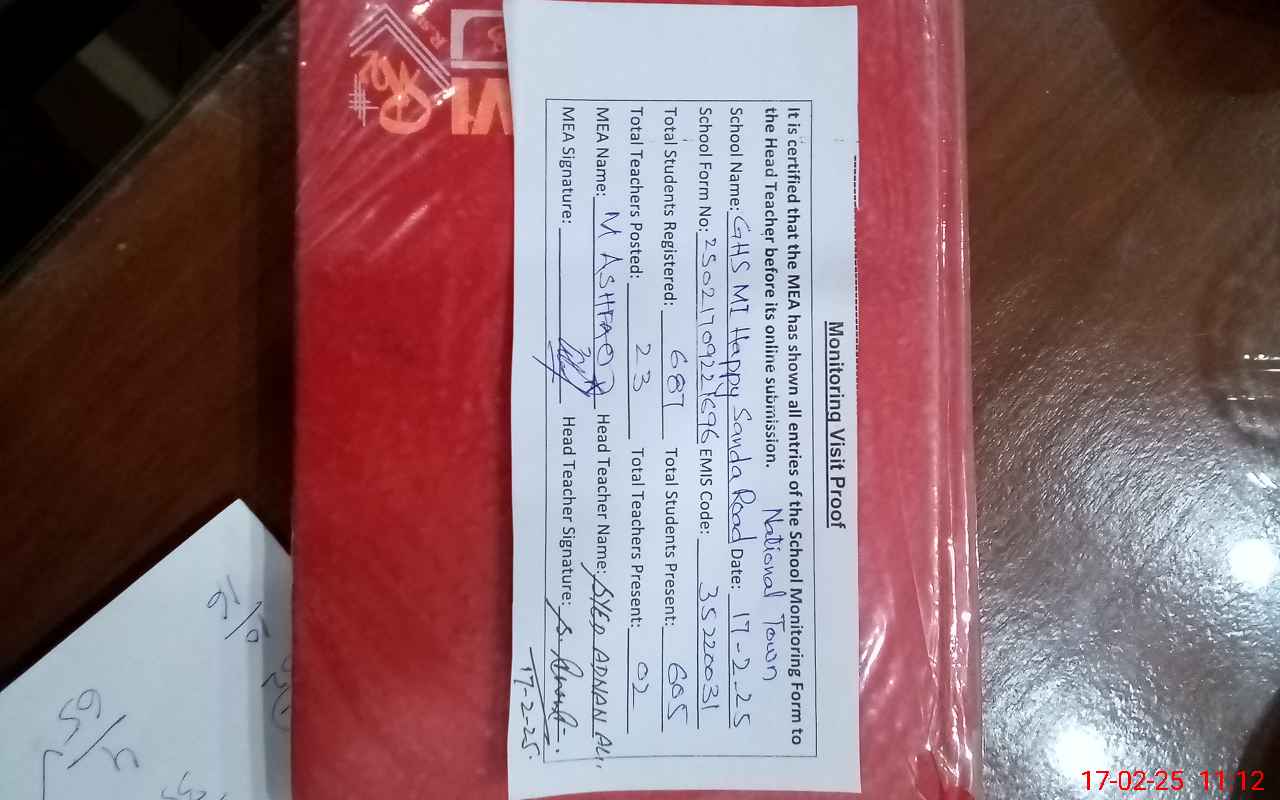 Monitoring Visit Proof
It is certified that the MEA has shown all entries of the School Monitoring Form to
the Head Teacher before its online submission. National Town
School Name: GHS MI Happy Sanda Road Date: 17-2-25
School Form No: EMIS Code: 35220031
Total Students Registered: 687 Total Students Present: 605
Total Teachers Posted: 23 Total Teachers Present: 02
MEA Name: M ASHFAQ Head Teacher Name: SYED ADNAN ALI
MEA Signature: Head Teacher Signature:
17-2-25.
17-02-25 11 12